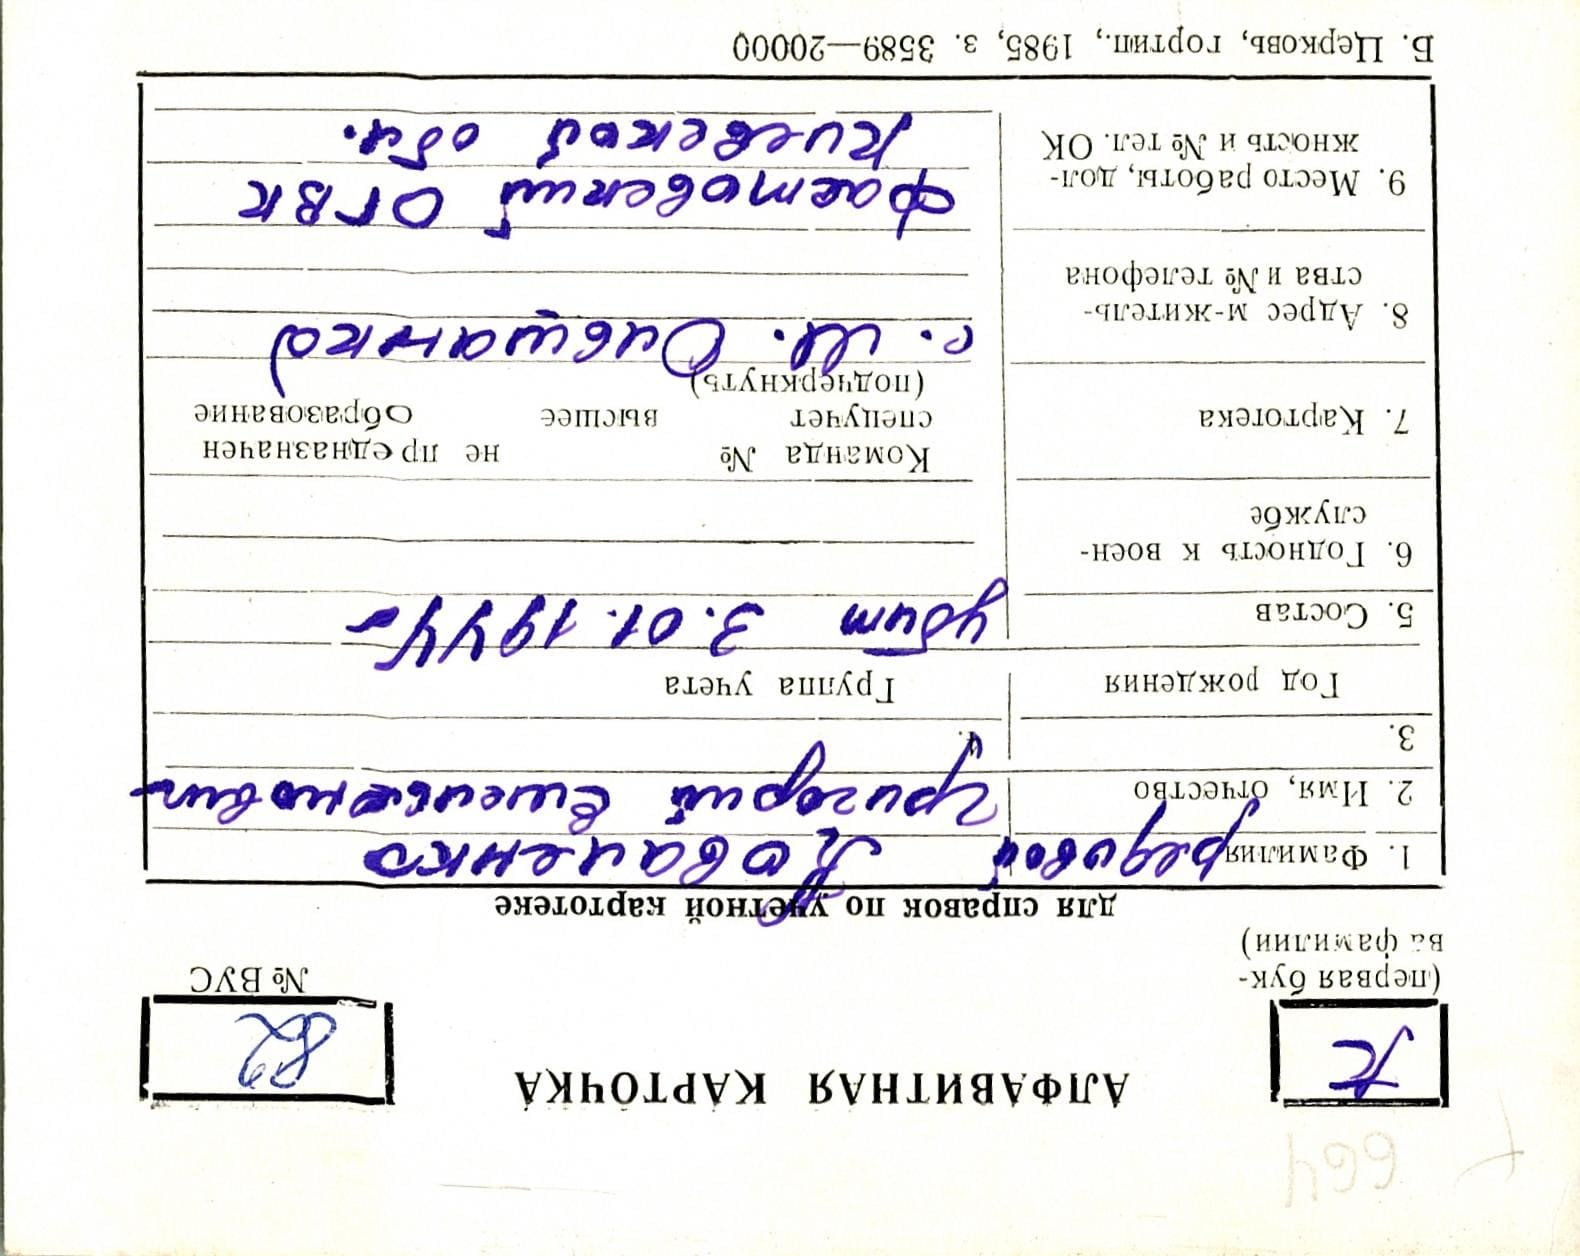 664
АЛФАВИТНАЯ КАРТОЧКА
К
82
(первая бук-
ва фамилии)
№ ВУС
для справок по учетной картотеке
1. Фамилия рядовой Коваченко
2. Имя, отчество Григорий
3.
4.
Год рождения
Группа учета
5. Состав
убит 3.01.1944
6. Годность к воен-
службе
7. Картотека
Команда № не предназначен
спецучет высшее образование
(подчеркнуть)
8. Адрес м-житель-
ства и № телефона
с. М.
9. Место работы, дол-
жность и № тел. ОК
Фастовский ОГВК
Киевской обл.
Б. Церковь, гортип., 1985, з. 3589—20000